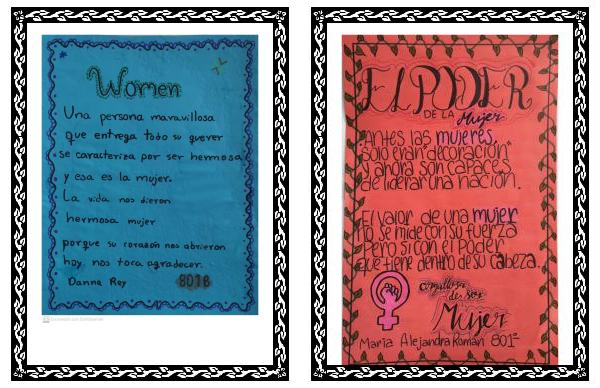 Women
Una persona maravillosa
que entrega todo su querer
se caracteriza por ser hermosa
y esa es la mujer.
La vida nos dieron
hermosa mujer
porque su corazón nos abrieron
hoy nos toca agradecer.
Danna Rey 801B
EL PODER
DE LA Mujer
Antes las mujeres
solo eran decoración
y ahora son capaces
de liderar una nación.
El valor de una mujer
no se mide con su fuerza
Pero si con el Poder
que tiene dentro de su cabeza.
orgullosa
de ser
Mujer
Maria Alejandra Román 801°